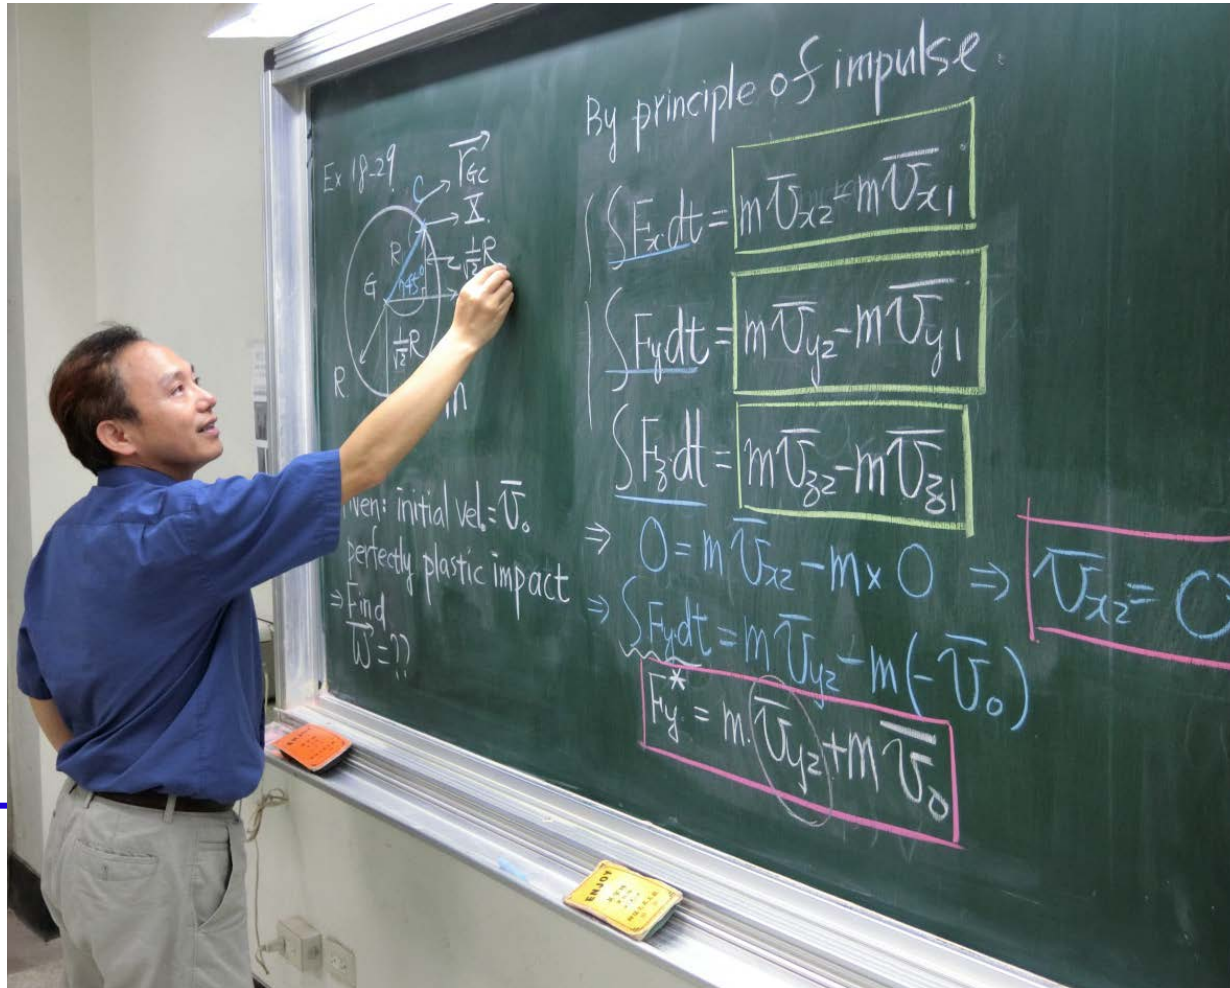 Ex 18-29
C
r⃗GC
X.
R
1/√2 R
G
45°
1/√2 R
R
m
iven: initial vel.= v̄₀
perfectly plastic impact
⇒ Find
ω⃗ =??
By principle of impulse.
∫Fx dt = m v̄x2 - m v̄x1
∫Fy dt = m v̄y2 - m v̄y1
∫Fz dt = m v̄z2 - m v̄z1
⇒ 0 = m v̄x2 - m × 0 ⇒ v̄x2 = 0
⇒ ∫Fy dt = m v̄y2 - m(- v̄₀)
Fy* = m. v̄y2 + m v̄₀
ENJOY